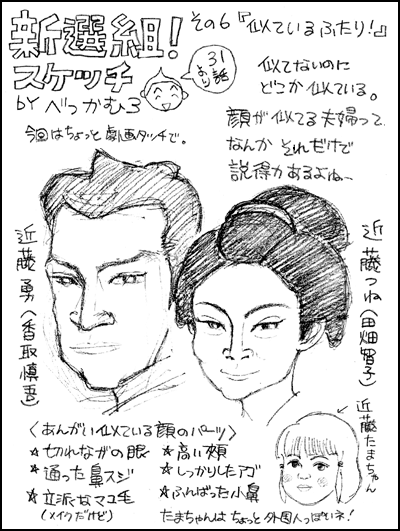 新選組!
スケッチ
BY べっかむ3
その6『似ているふたり!』
31話より
似てないのに
どこか似ている。
顔が似てる夫婦って
なんか それだけで
説得力あるよねー
今回はちょっと劇画タッチで。
近藤勇(香取慎吾)
近藤つね(田畑智子)
〈あんがい似ている顔のパーツ〉
☆切れながの眼
☆通った鼻スジ
☆立派なマユ毛
(メイクだけど)
☆高い頬
☆しっかりしたアゴ
☆ふんばった小鼻
近藤たまちゃん
たまちゃんは ちょっと外国人っぽいネ!